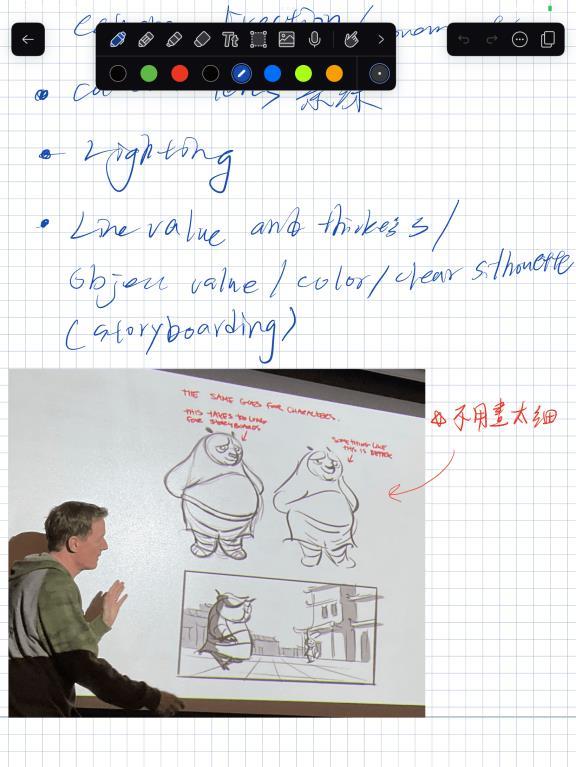 • Lighting
• Line value and thickess /
Object value / color / clear silhouette
(storyboarding)
THE SAME GOES FOR CHARACTERS.
THIS TAKES TOO LONG
FOR STORYBOARDS
SOMETHING LIKE
THIS IS BETTER
不用畫太細
Tt